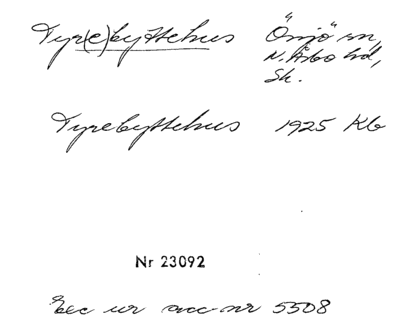 Tyr(e)byttehus Önnjö sn,
N. Åsbo hd,
Sk.
Tyrebyttehus 1925 Kb
Nr 23092
Exc ur acc nr 5508